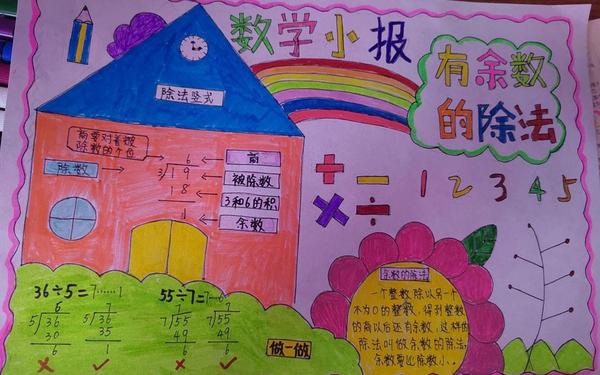 数学小报
有余数
的除法
除法竖式
商要对着被
除数的个位
除数
6
3 19
18
1
商
被除数
3和6的积
余数
+ −
× ÷
1 2 3 4 5
36÷5=7……1
6
5 36
30
6
×
7
5 36
35
1
✓
55÷7=7……6
7
7 55
49
6
×
7
7 55
49
6
✓
做一做
余数的除法
一个整数除以另一个
不为0的整数，得到整数
的商以后还有余数，这样的
除法叫做余数的除法，
余数要比除数小。